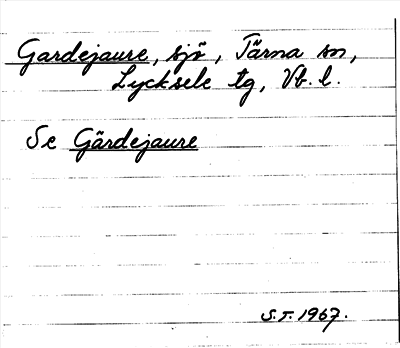 Gardejaure, sjö, Tärna sn,
Lycksele tg, Vb. l.
Se Gärdejaure
S.T. 1967.